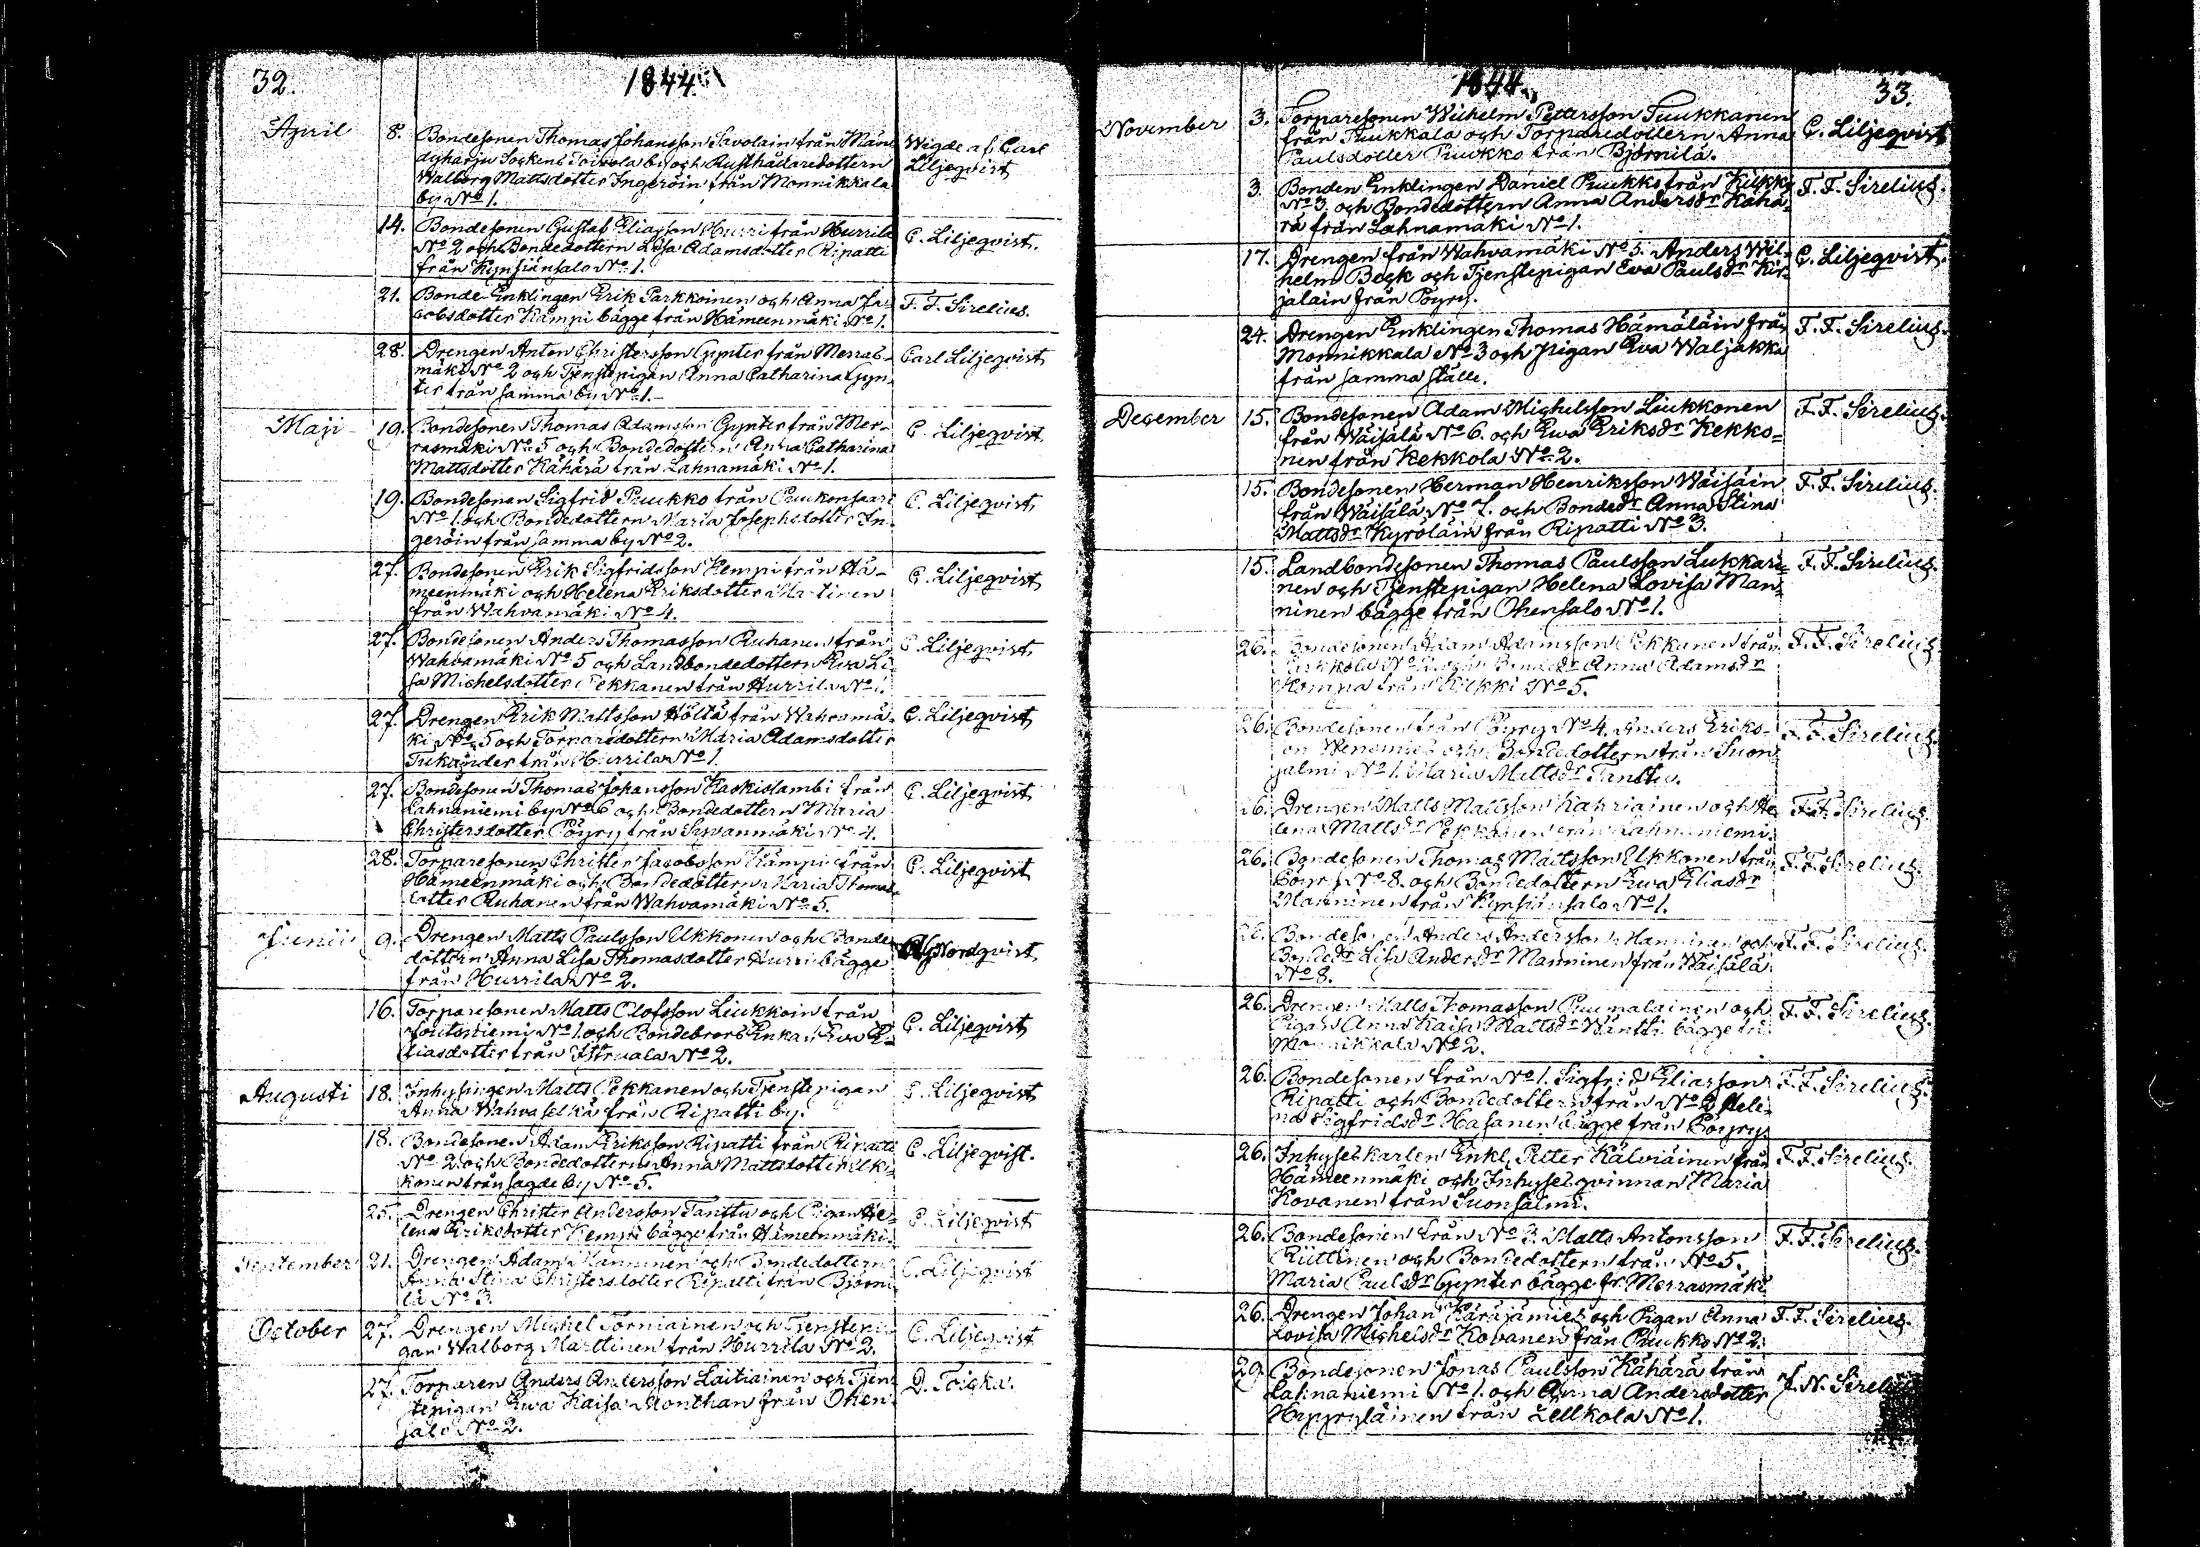 32.
1844.
April 8. Bondesonen Thomas Johansson Savolain från Män-
dyharju Sockens Toivola by och Rusthådaredottern
Walborg Mattsdotter Ingeröin från Monnikkala
by No 1.
Wigde af Carl
Liljeqvist
14. Bondesonen Gustaf Eliasson Hurri från Hurrila
No 2 och Bondedottern Lisa Adamsdotter Ripatti
från Kynsiänsalo No 1.
C. Liljeqvist.
21. Bonde Enklingen Erik Parkkoinen och Anna Ja-
cobsdotter Kämpi bägge från Hämeenmäki No 1.
F. F. Sirelius.
28. Drengen Anton Christersson Gynter från Merras-
mäki No 2 och Tjenstepigan Anna Catharina Gyn-
ter från samma by No 1.
Carl Liljeqvist
Maji 19. Bondesonen Thomas Adamsson Gynter från Mer-
rasmäki No 5 och Bondedottern Anna Catharina
Mattsdotter Kähärä från Lahnamäki No 1.
C. Liljeqvist
19. Bondesonen Sigfrid Puukko från Puukonsaari
No 1. och Bondedottern Maria Josephsdotter In-
geröin från samma by No 2.
C. Liljeqvist
27. Bondesonen Erik Sigfridsson Kempi från Hä-
meenmäki och Helena Eriksdotter Martinen
från Wahvamäki No 4.
C. Liljeqvist
27. Bondesonen Anders Thomasson Ruhanen från
Wahvamäki No 5 och Landbondedottern Ewa Li-
sa Michelsdotter Pekkanen från Hurrila No 1.
C. Liljeqvist
27. Drengen Erik Mattsson Hölttä från Wahvamä-
ki No 5 och Torparedottern Maria Adamsdotter
Tukiander från Hurrila No 1.
C. Liljeqvist
27. Bondesonen Thomas Johansson Kaskislambi från
Lahnaniemi by No 6 och Bondedottern Maria
Christersdotter Pöyry från Sywänmäki No 4.
C. Liljeqvist
28. Torparesonen Christer Jacobsson Kämpi från
Hämeenmäki och Bondedottern Maria Thomas-
dotter Ruhanen från Wahvamäki No 5.
C. Liljeqvist
Junii 9. Drengen Matts Paulsson Ukkonen och Bonde-
dottern Anna Lisa Thomasdotter Hurri bägge
från Hurrila No 2.
Nordqvist
16. Torparesonen Matts Olofsson Liukkoin från
Joutsniemi No 1. och Bondebrors Enkan Ewa E-
liasdotter från No 2.
C. Liljeqvist
Augusti 18. Inhysingen Matts Pekkanen och Tjenstepigan
Anna Wahvaselkä från Ripatti by.
C. Liljeqvist
18. Bondesonen Adam Eriksson Ripatti från Ripatti
No 2. och Bondedottern Anna Mattsdotter Uk-
konen från sagde by No 5.
C. Liljeqvist.
25. Drengen Christer Andersson Tanttu och Pigan He-
lena Eriksdotter Kempi bägge från Hämeenmäki.
C. Liljeqvist
September 21. Drengen Adam Manninen och Bondedottern
Anna Stina Christersdotter Ripatti från Björni-
lä No 3.
C. Liljeqvist
October 27. Drengen Michel Torniainen och Tjenstepi-
gan Walborg Marttinen från Hurrila No 2.
C. Liljeqvist
27. Torparen Anders Andersson Laitiainen och Tjen-
stepigan Ewa Kaisa Monthan från Ohen-
salo No 2.
D. Toicka.
1844.
33.
November 3. Torparesonen Wilhelm Petersson Tuukkanen
från Tuukkala och Torparedottern Anna
Paulsdotter Puukko från Björnilä.
C. Liljeqvist
3. Bonden Enklingen Daniel Puukko från Kilkki
No 3. och Bondedottern Anna Andersdr Kähä-
rä från Lahnamäki No 1.
F. F. Sirelius.
17. Drengen från Wahvamäki No 5. Anders Wil-
helm Beck och Tjenstepigan Eva Paulsdr Kir-
jalain från Pöyry.
C. Liljeqvist.
24. Drengen Enklingen Thomas Hämäläin från
Monnikkala No 3 och Pigan Eva Waljakka
från samma ställe.
F. F. Sirelius.
December 15. Bondesonen Adam Michelsson Liukkonen
från Wäisälä No 6. och Ewa Eriksdr Kekko-
nen från Kekkola No 2.
F. F. Sirelius.
15. Bondesonen Herman Henriksson Wäisäin
från Wäisälä No 7. och Bondedr Anna Stina
Mattsdr Kyröläin från Ripatti No 3.
F. F. Sirelius.
15. Landbondesonen Thomas Paulsson Lukkari-
nen och Tjenstepigan Helena Lovisa Man-
ninen bägge från Ohensalo No 1.
F. F. Sirelius.
26. Bondesonen Adam Adamsson Pekkanen från
och Bondedr Anna Adamsdr
Kompa från Kilkki No 5.
F. F. Sirelius.
26. Bondesonen från Pöyry No 4. Anders Eriks-
son och Bondedottern från Suon-
salmi No 1. Maria Mattsdr Tanttu.
F. F. Sirelius.
26. Drengen Matts Mattsson Kahriainen och He-
lena Mattsdr Pekkanen från Lahnaniemi.
F. F. Sirelius.
26. Bondesonen Thomas Mattsson Ukkonen från
Pöyry No 8. och Bondedottern Ewa Eliasdr
Manninen från Kynsiänsalo No 1.
F. F. Sirelius.
26. Bondesonen Anders Andersson Manninen och
Bondedr Lisa Andersdr Manninen från Wäisälä
No 8.
F. F. Sirelius.
26. Drengen Matts Thomasson Puumalainen och
Pigan Anna Kaisa Mattsdr Wänttä bägge fr.
Monnikkala No 2.
F. F. Sirelius.
26. Bondesonen från No 1. Sigfrid Eliasson
Ripatti och Bondedottern från No 2 Hele-
na Sigfridsdr Hasanen bägge från Pöyry.
F. F. Sirelius.
26. Inhyseskarlen Enkl. Petter Kälviäinen från
Hämeenmäki och Inhysesqvinnan Maria
Kovanen från Suonsalmi.
F. F. Sirelius.
26. Bondesonen från No 3. Matts Antonsson
Riittinen och Bondedottern från No 5.
Maria Paulsdr Gynter bägge fr. Merrasmäki
F. F. Sirelius.
26. Drengen Johan Käräjämies och Pigan Anna
Lovisa Michelsdr Kovanen från Puukko No 2.
F. F. Sirelius.
29. Bondesonen Jonas Paulsson Kähärä från
Lahnaniemi No 1. och Anna Andersdotter
Hyyryläinen från Lellkola No 1.
J. N. Sireli